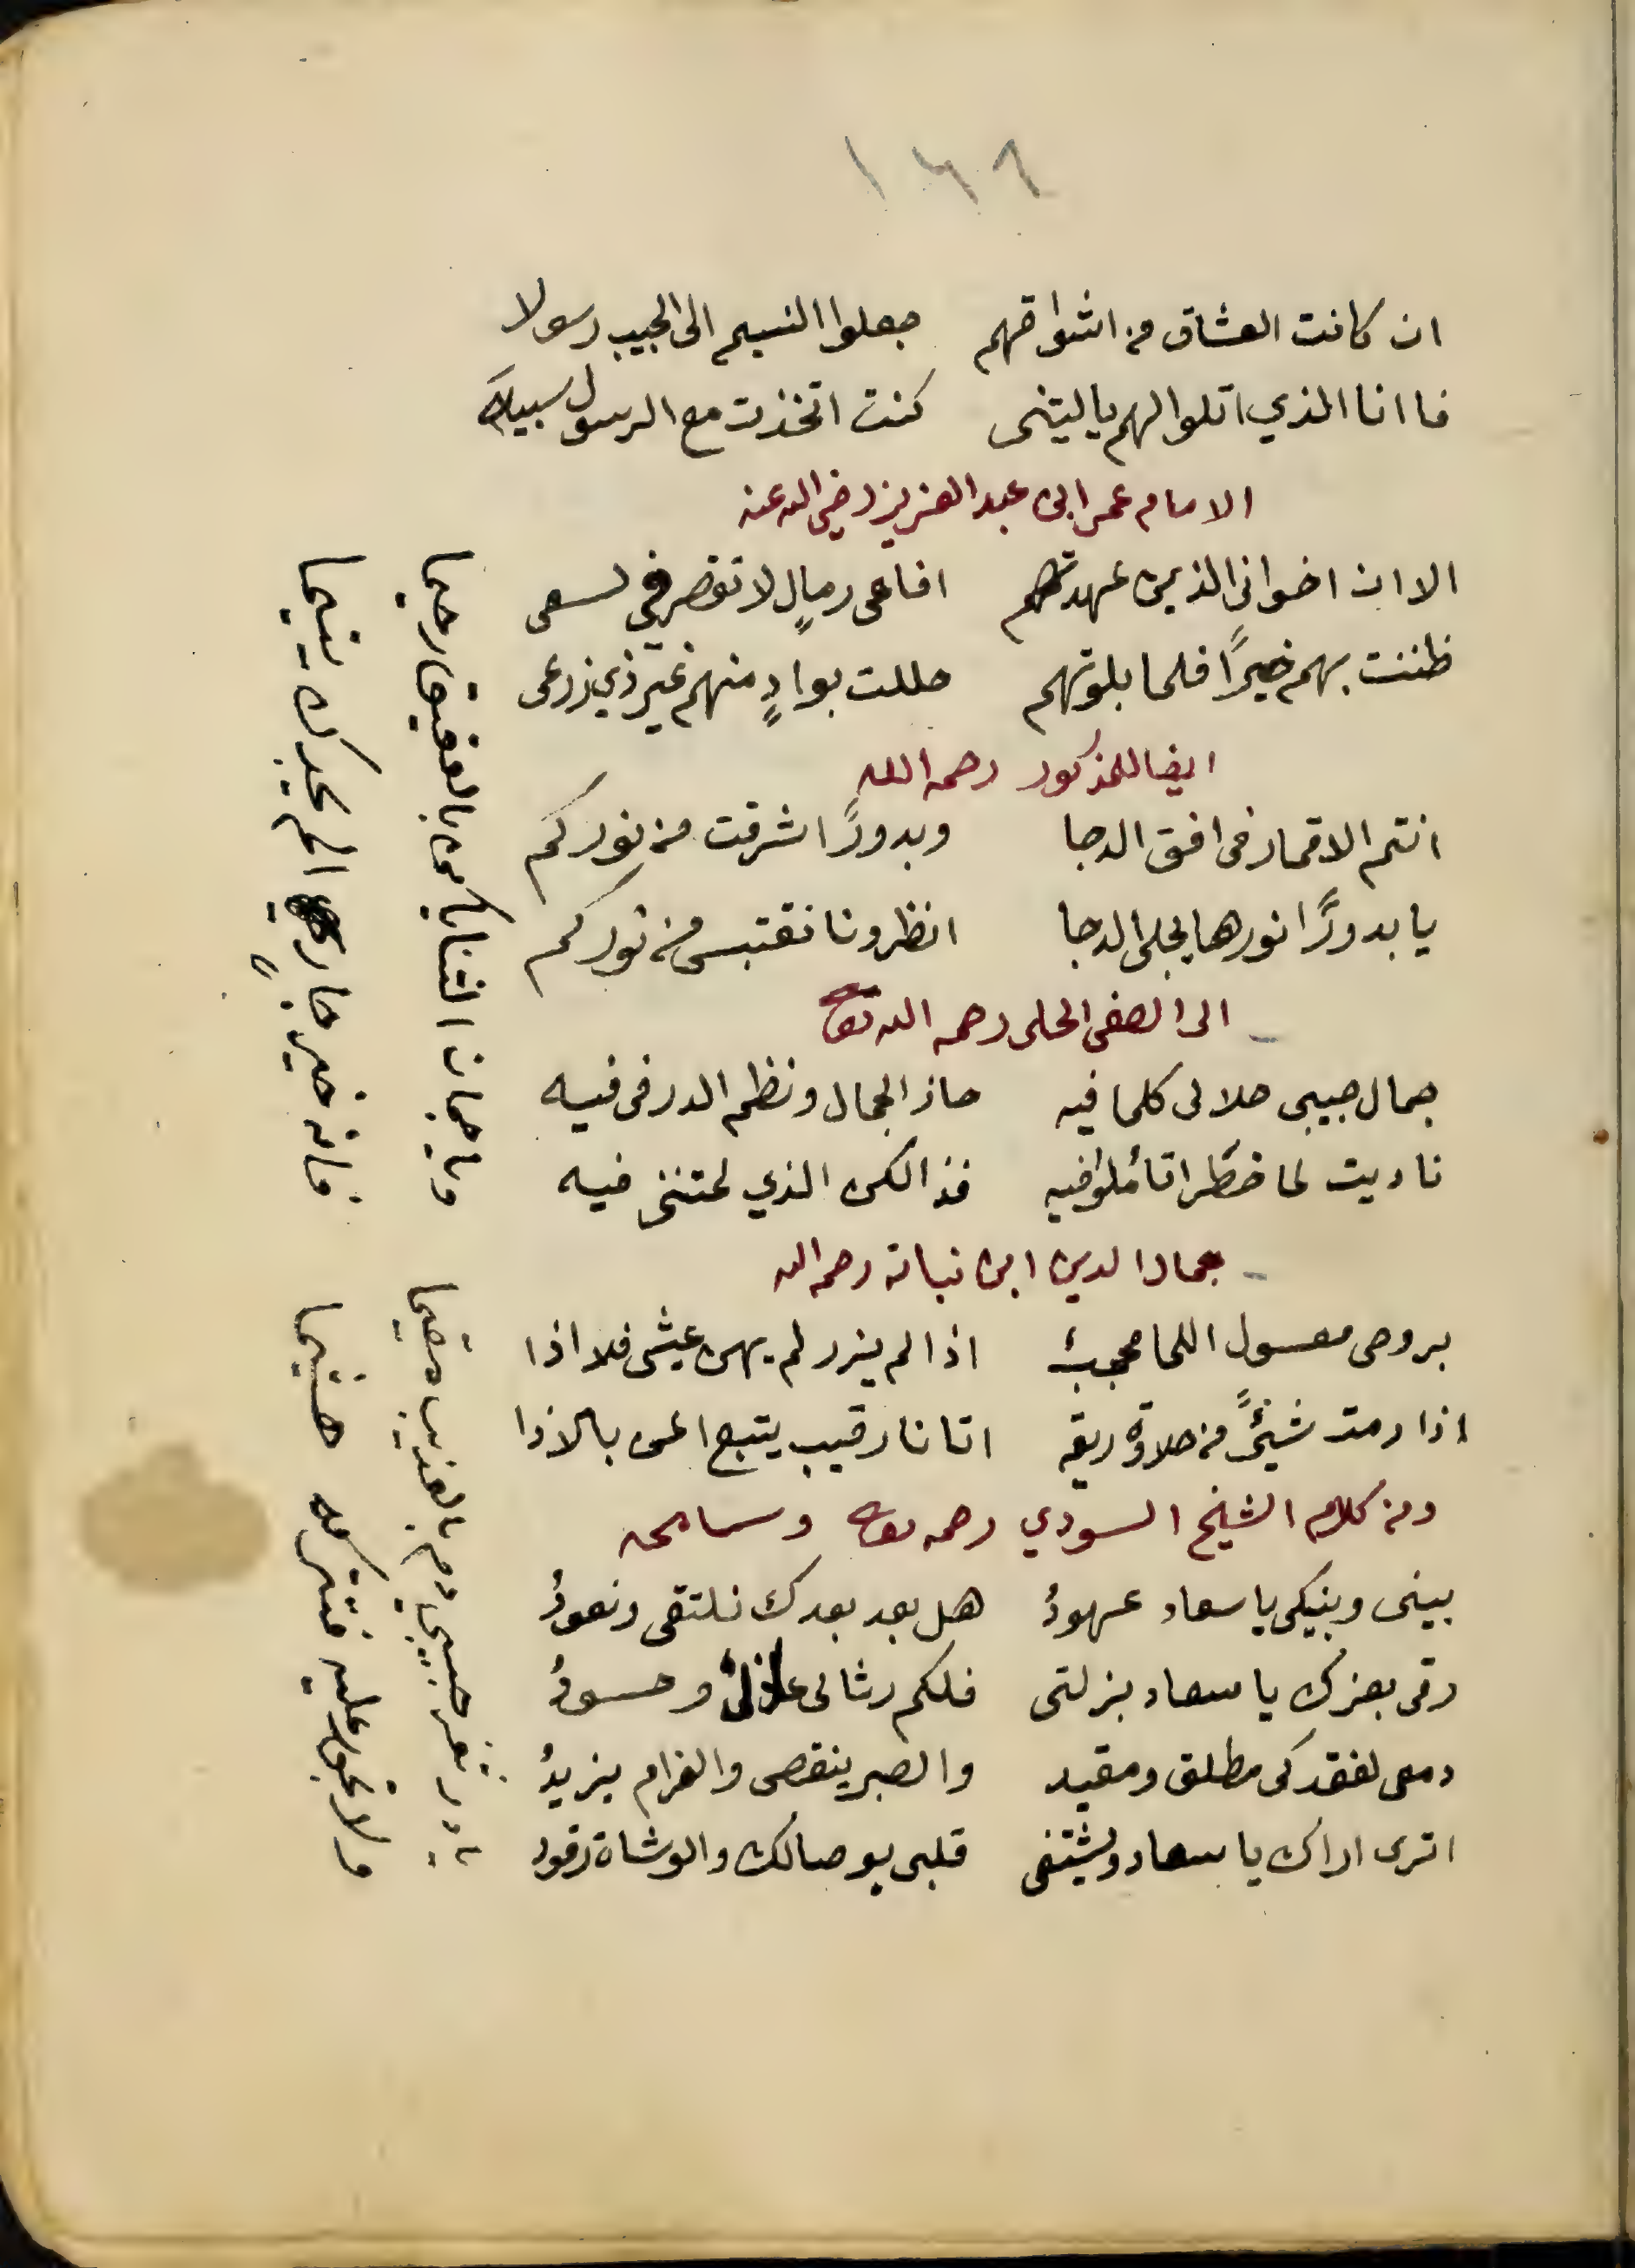 ١٤٦
ان كانت العشاق من اشواقهم جعلوا النسيم الى الحبيب رسولا
فاانا الذي اتلوا لهم ياليتنى كنت اتخذت مع الرسول سبيلا
الامام عمر ابن عبد العزيز رضى الله عنه
الا ان اخوانى الذين عهدتهم افاعى رمالٍ لا تقصر فى لسعى
ظننت بهم خيرًا فلما بلوتهم حللت بوادٍ منهم غير ذي زرعى
ايضا للمذكور رحمه الله
انتم الاقمار فى افق الدجا وبدورًا اشرقت من نوركم
يا بدورًا نورها يجلى الدجا انظرونا نقتبس من نوركم
الى الصفى الحلى رحمه الله تعالى
جمال حبيبى حلالى كلما فيه حاز الجمال ونظم الدر فى فيه
ناديت لما خطر اتأملوا فيه فذالكن الذي لمتننى فيه
جماد الدين ابن نباته رحمه الله
بروحى معسول اللما محجب اذا لم يزر لم يهن عيشى فلا اذا
اذا رمت شيئً من حلاوة ريقه اتانا رقيب يتبع المن بالاذا
ومن كلام الشيخ السودي رحمه تعالى وسامحه
بينى وبنيكى يا سعاد عهودُ هل بعد بعدك نلتقى ونعودُ
رقى بعزك يا سعاد بزلتى فلكم رثالى عاذلٌ وحسودُ
دمعى لفقدكى مطلق ومقيد والصبر ينقص والغرام يزيدُ
اترى اراك يا سعاد ويشتفى قلبى بوصالك والوشاة رقود
يا در ثغر حبيبى دم بالعذيب مقيما وياجمان الثنايا كن بالعقيق رحيما
ولا تخف عليه فتركه هشيما فانه خير جارٍ الم يجدك يتيما